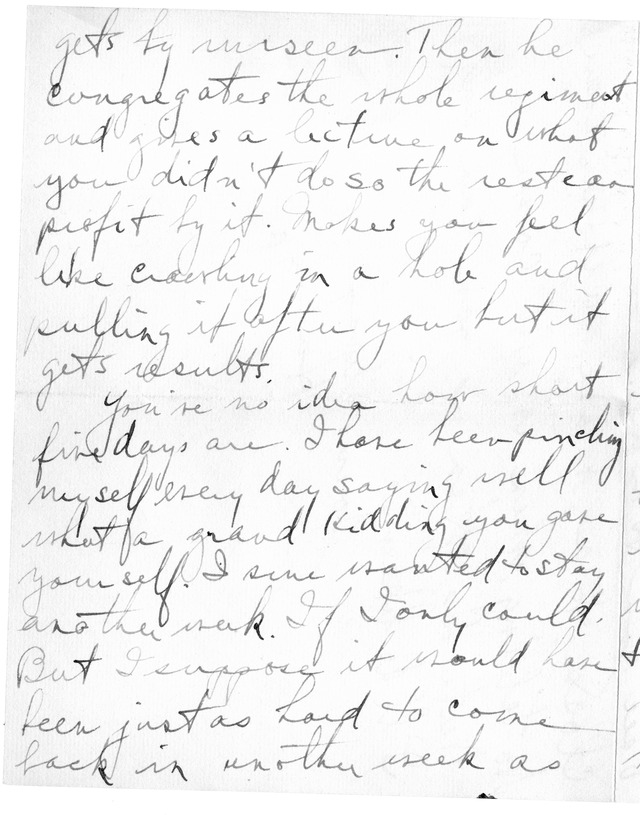 gets by unseen. Then he
congregates the whole regiment
and gives a lecture on what
you didn't do so the rest can
profit by it. Makes you feel
like crawling in a hole and
pulling it after you but it
gets results.
You've no idea how short
five days are. I have been pinching
myself every day saying well
what a grand kidding you gave
yourself. I sure wanted to stay
another week. If I only could.
But I suppose it would have
been just as hard to come
back in another week as